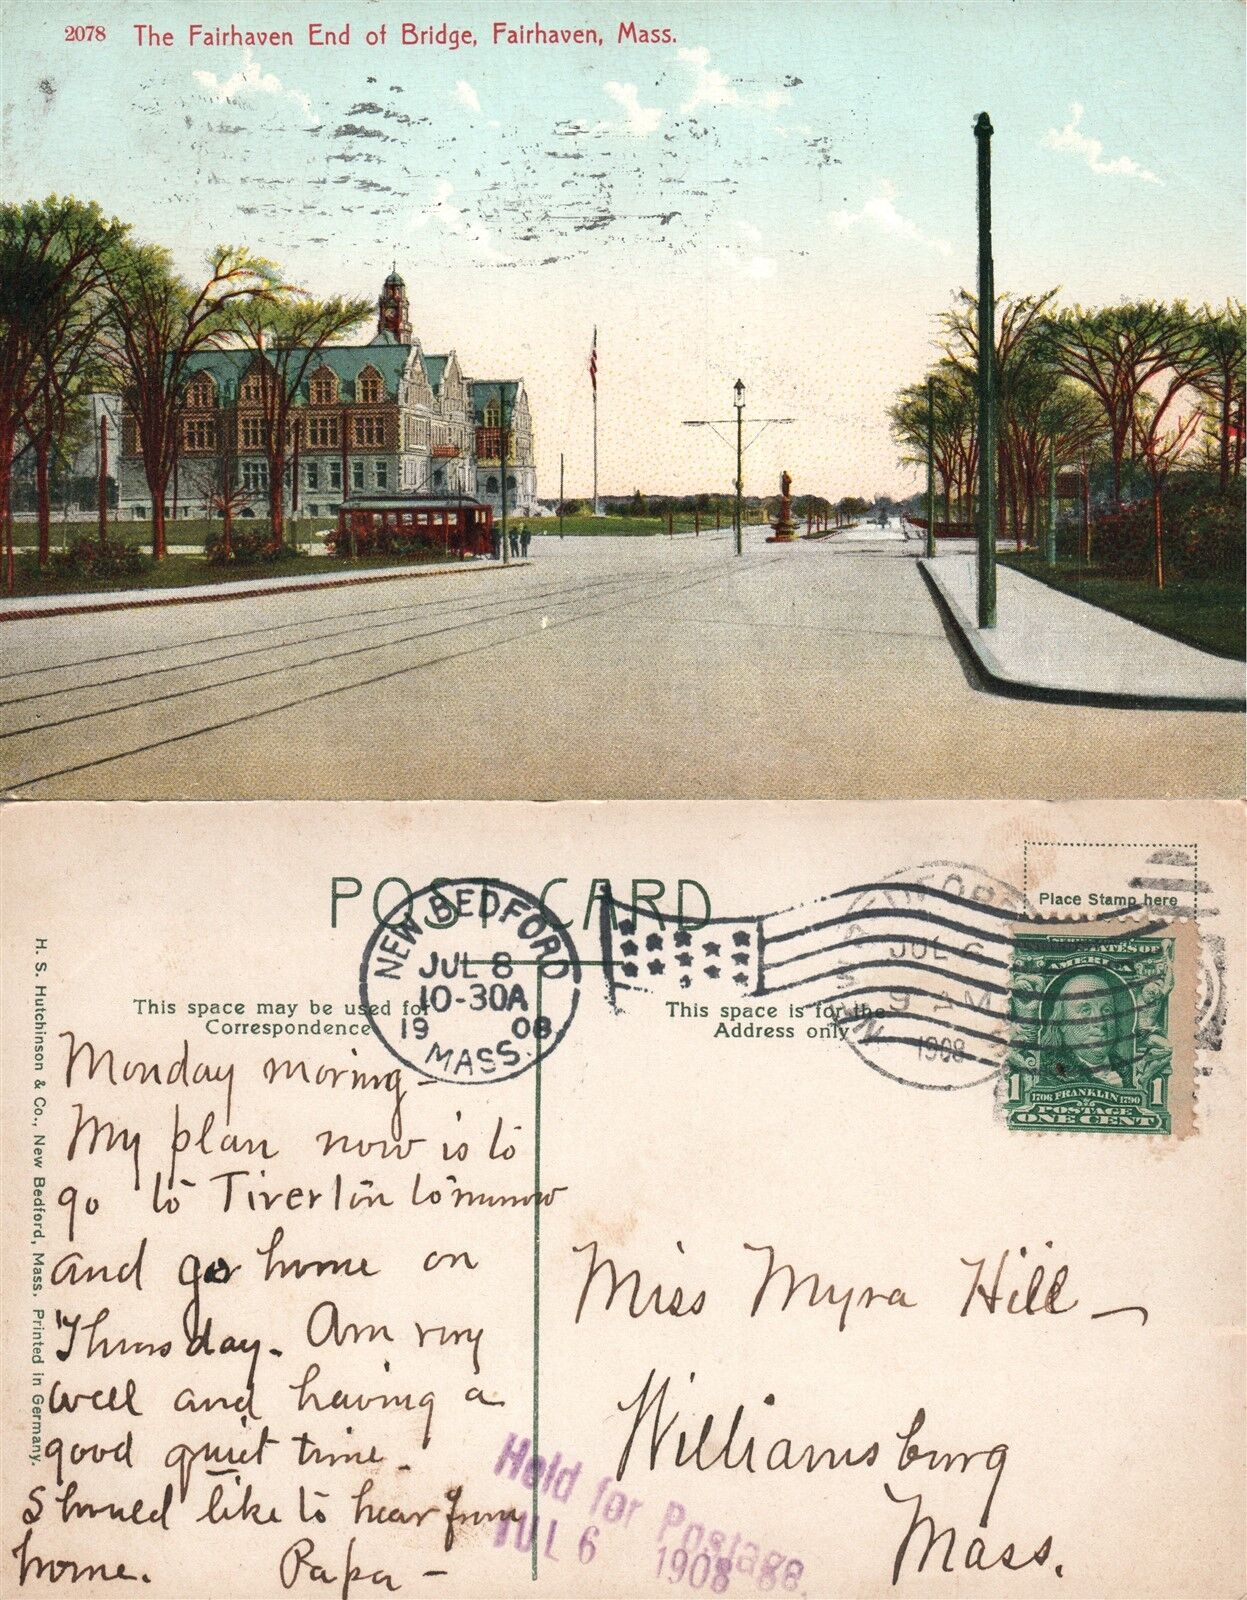 2078 The Fairhaven End of Bridge, Fairhaven, Mass.
POST CARD
Place Stamp here
NEW BEDFORD
JUL 8
10-30A
19 08
MASS.
BEDFORD
JUL 6
9 AM
1908
UNITED STATES OF
AMERICA
1 1706 FRANKLIN 1790 1
POSTAGE
ONE CENT
This space may be used for
Correspondence
This space is for the
Address only
H. S. Hutchinson & Co., New Bedford, Mass. Printed in Germany.
Monday moring -
My plan now is to
go to Tiverton tomorrow
and go home on
Thursday. Am very
well and having a
good quiet time.
Should like to hear from
home. Papa -
Miss Myra Hill -
Williamsburg
Mass.
Held for Postage
JUL 6 1908